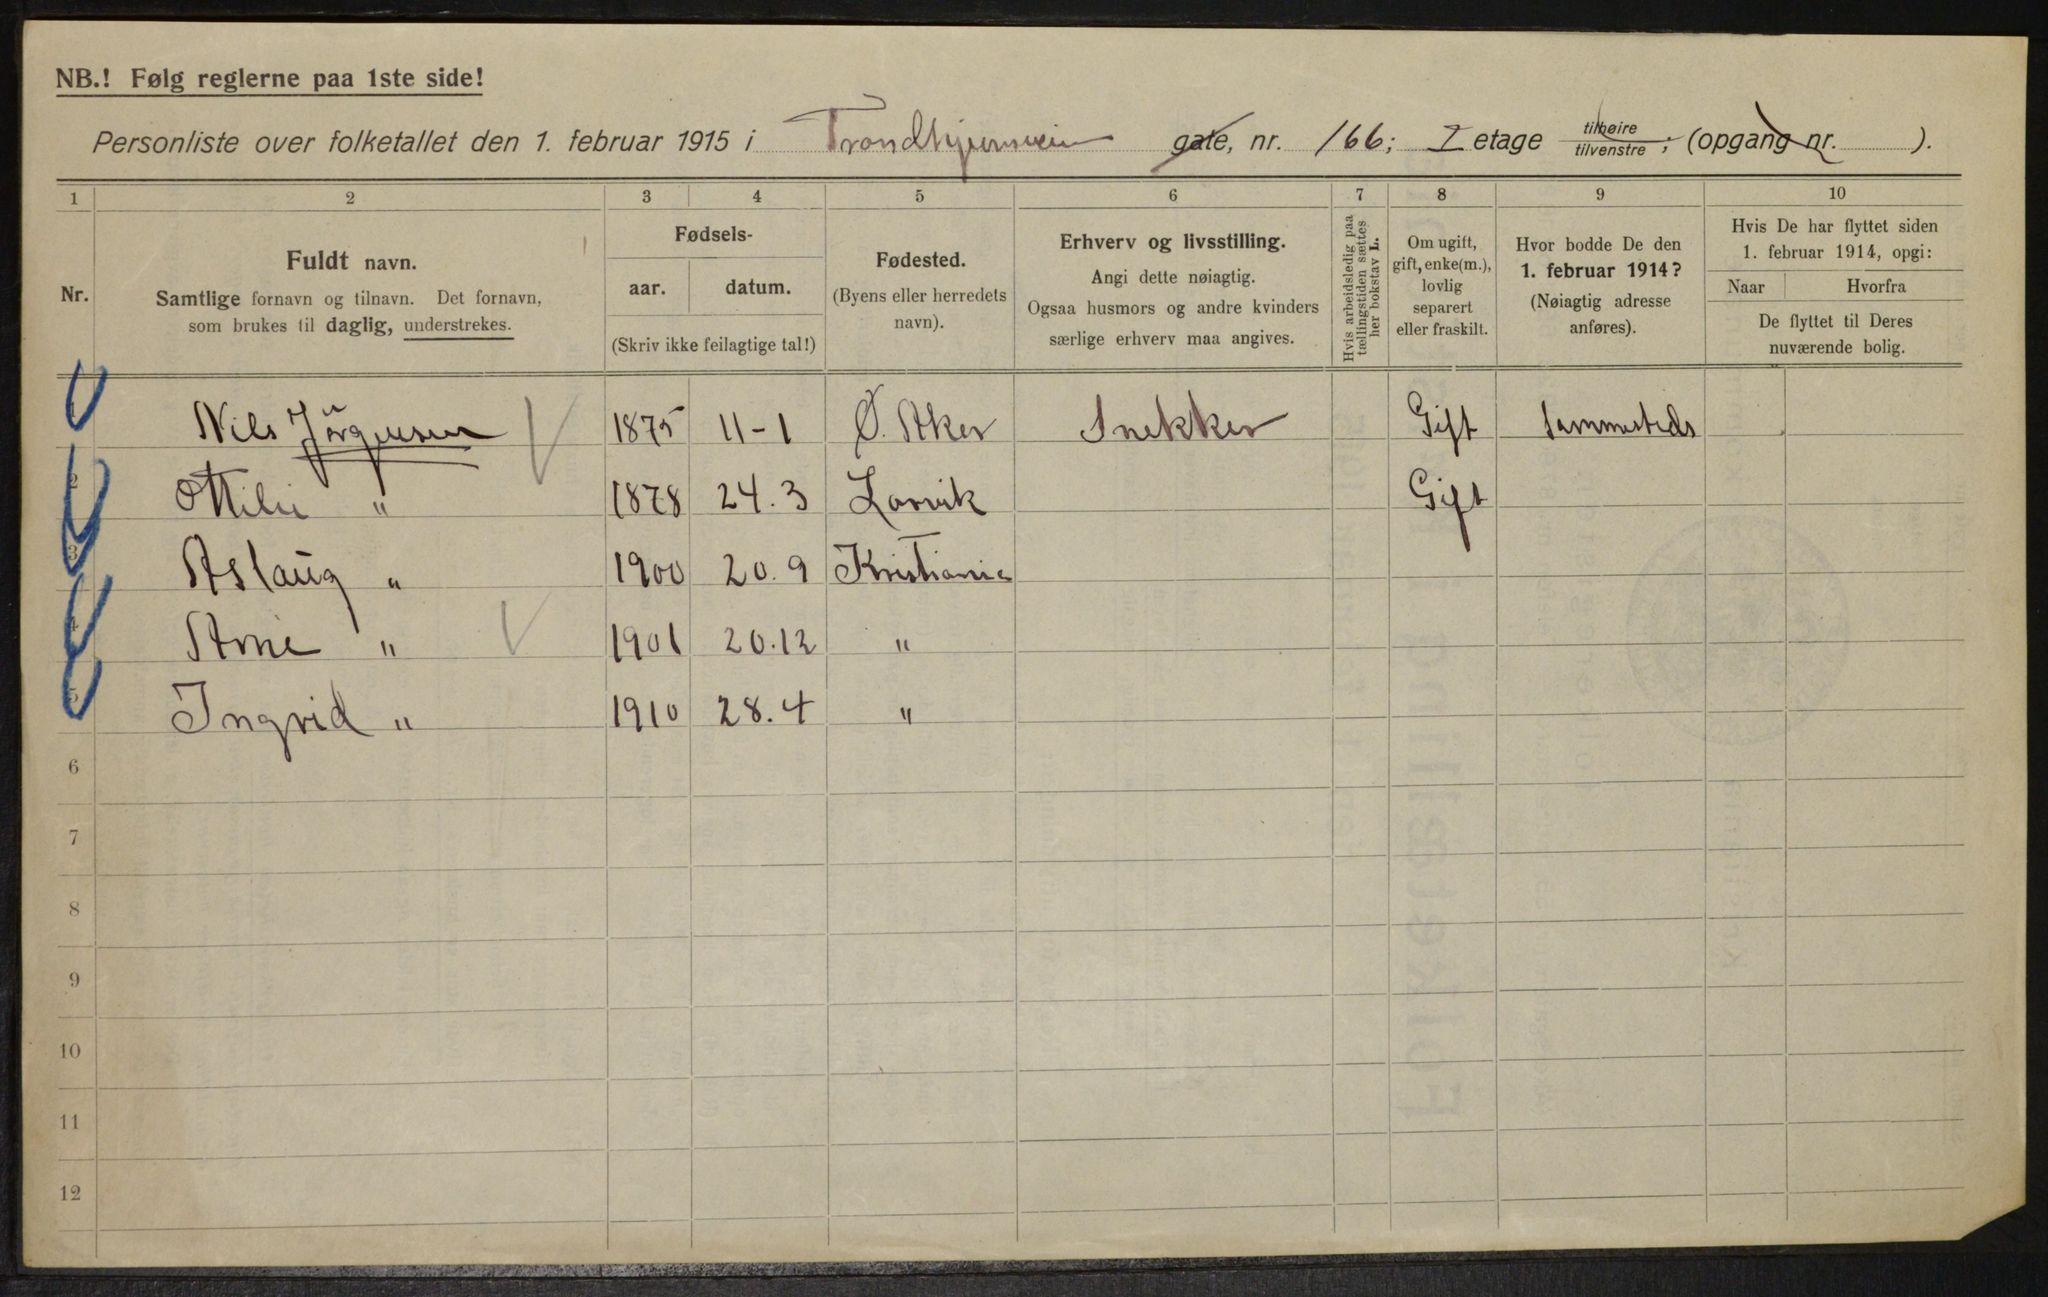 NB.! Følg reglerne paa 1ste side!
Personliste over folketallet den 1. februar 1915 i Trondhjemsveien gate, nr. 166; I etage tilhøire/tilvenstre; (opgang nr. ).
1 2 3 4 5 6 7 8 9 10
Nr.
Fuldt navn.
Samtlige fornavn og tilnavn. Det fornavn,
som brukes til daglig, understrekes.
Fødsels-
aar. datum.
(Skriv ikke feilagtige tal!)
Fødested.
(Byens eller herredets
navn).
Erhverv og livsstilling.
Angi dette nøiagtig.
Ogsaa husmors og andre kvinders
særlige erhverv maa angives.
Hvis arbeidsledig paa
tællingstiden sættes
her bokstav L.
Om ugift,
gift, enke(m.),
lovlig
separert
eller fraskilt.
Hvor bodde De den
1. februar 1914?
(Nøiagtig adresse
anføres).
Hvis De har flyttet siden
1. februar 1914, opgi:
Naar Hvorfra
De flyttet til Deres
nuværende bolig.
1 Nils Jørgensen 1875 11-1 Ø. Aker Snekker Gift Sammesteds
2 Ottilie " 1878 24.3 Larvik Gift
3 Aslaug " 1900 20.9 Kristiania
4 Arne " 1901 20.12 "
5 Ingrid " 1910 28.4 "
6
7
8
9
10
11
12